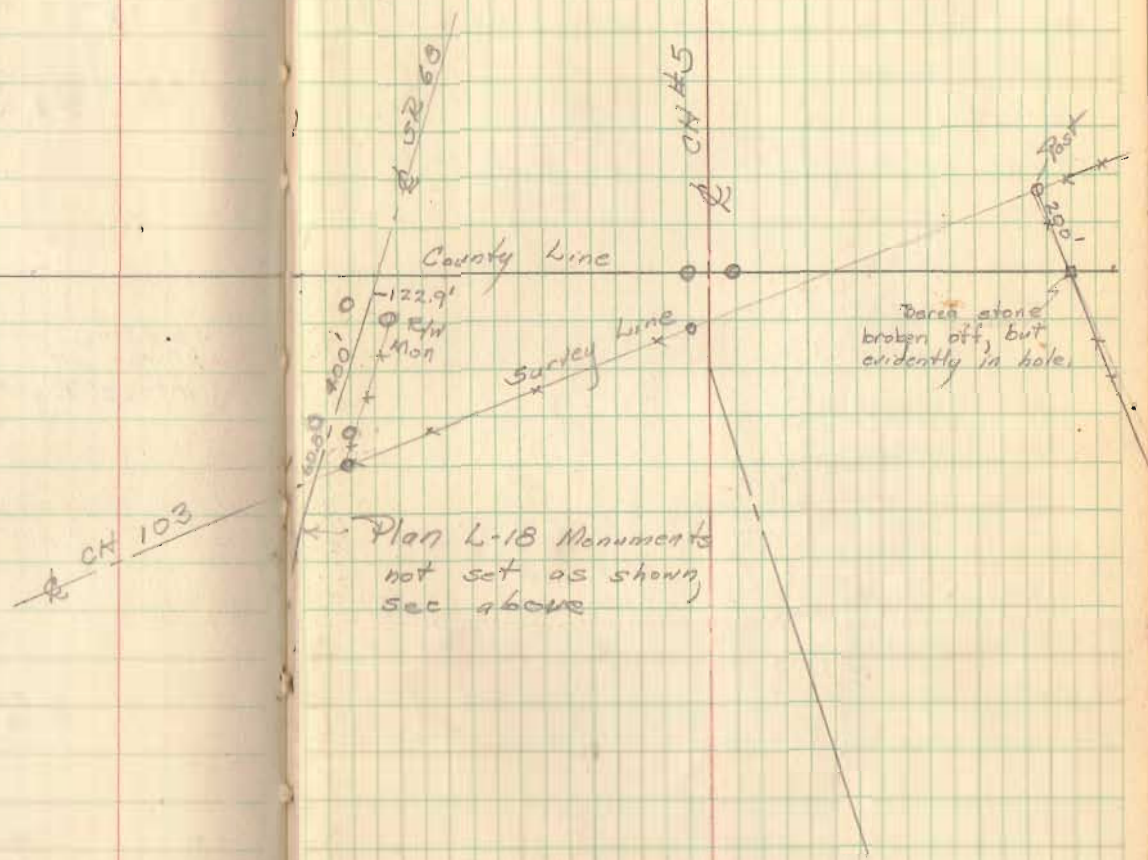 ℄ SR 68
CH #5
℄
Post
290'
County Line
122.9'
R/W
Mon
400'
60.80'
Survey Line
stone
broken off, but
evidently in hole.
℄ CH 103
Plan L-18 Monuments
not set as shown,
see above